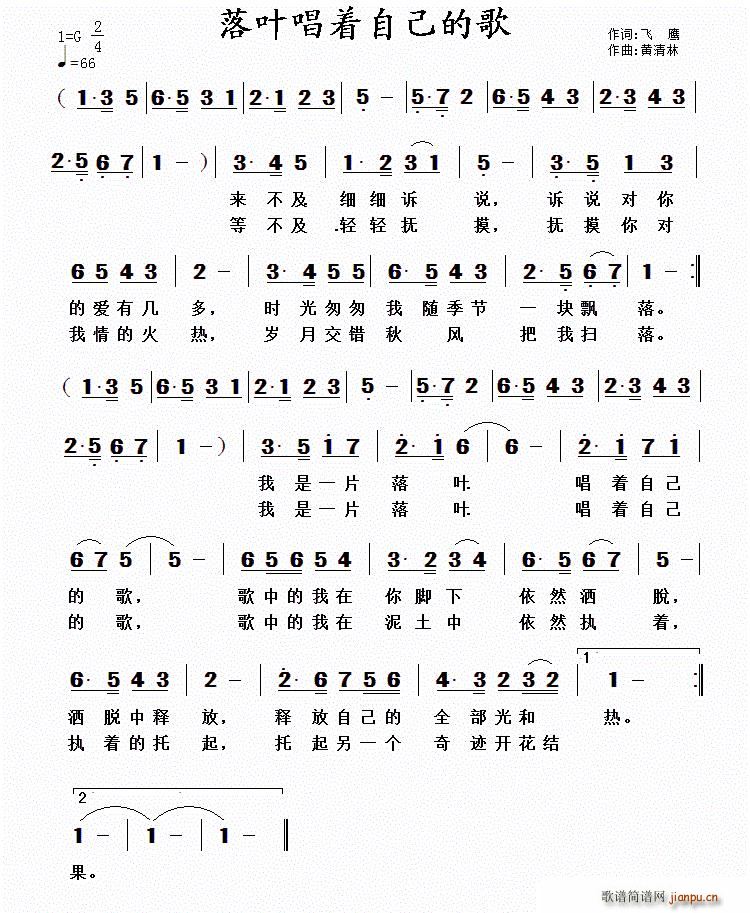 落叶唱着自己的歌
1=G 2/4
♩=66
作词:飞 鹰
作曲:黄清林
( 1·3 5 | 6·5 3 1 | 2·1 2 3 | 5 - | 5·7 2 | 6·5 4 3 | 2·3 4 3 |
2·5 6 7 | 1 - ) | 3· 4 5 | 1· 2 3 1 | 5 - | 3· 5 1 3 |
来 不及 细细诉 说, 诉 说对你
等 不及 轻轻抚 摸, 抚 摸你对
6 5 4 3 | 2 - | 3· 4 3 2 | 6· 5 4 3 | 2· 5 6 7 | 1 - :||
的爱有几 多, 时 光匆匆 我 随季节 一 块飘 落。
我情的火 热, 岁 月交错 秋 风 把 我扫 落。
( 1·3 5 | 6·5 3 1 | 2·1 2 3 | 5 - | 5·7 2 | 6·5 4 3 | 2·3 4 3 |
2·5 6 7 | 1 - ) | 3· 5 1 7 | 2· 1 6 | 6 - | 2· 1 7 1 |
我 是一片 落 叶 唱 着自己
我 是一片 落 叶 唱 着自己
6 7 5 | 5 - | 6 5 6 5 4 | 3· 2 3 4 | 6· 5 6 7 | 5 - |
的 歌, 歌中的我在 你脚下 依然洒 脱,
的 歌, 歌中的我在 泥土中 依然执 着,
6· 5 4 3 | 2 - | 2· 6 7 5 6 | 4· 3 2 3 2 | 1 1 - :||
洒 脱中释 放, 释 放自己的 全 部光和 热。
执 着的托 起, 托 起另一个 奇 迹开花结
2
1 - | 1 - | 1 - ||
果。
歌谱简谱网 jianpu.cn